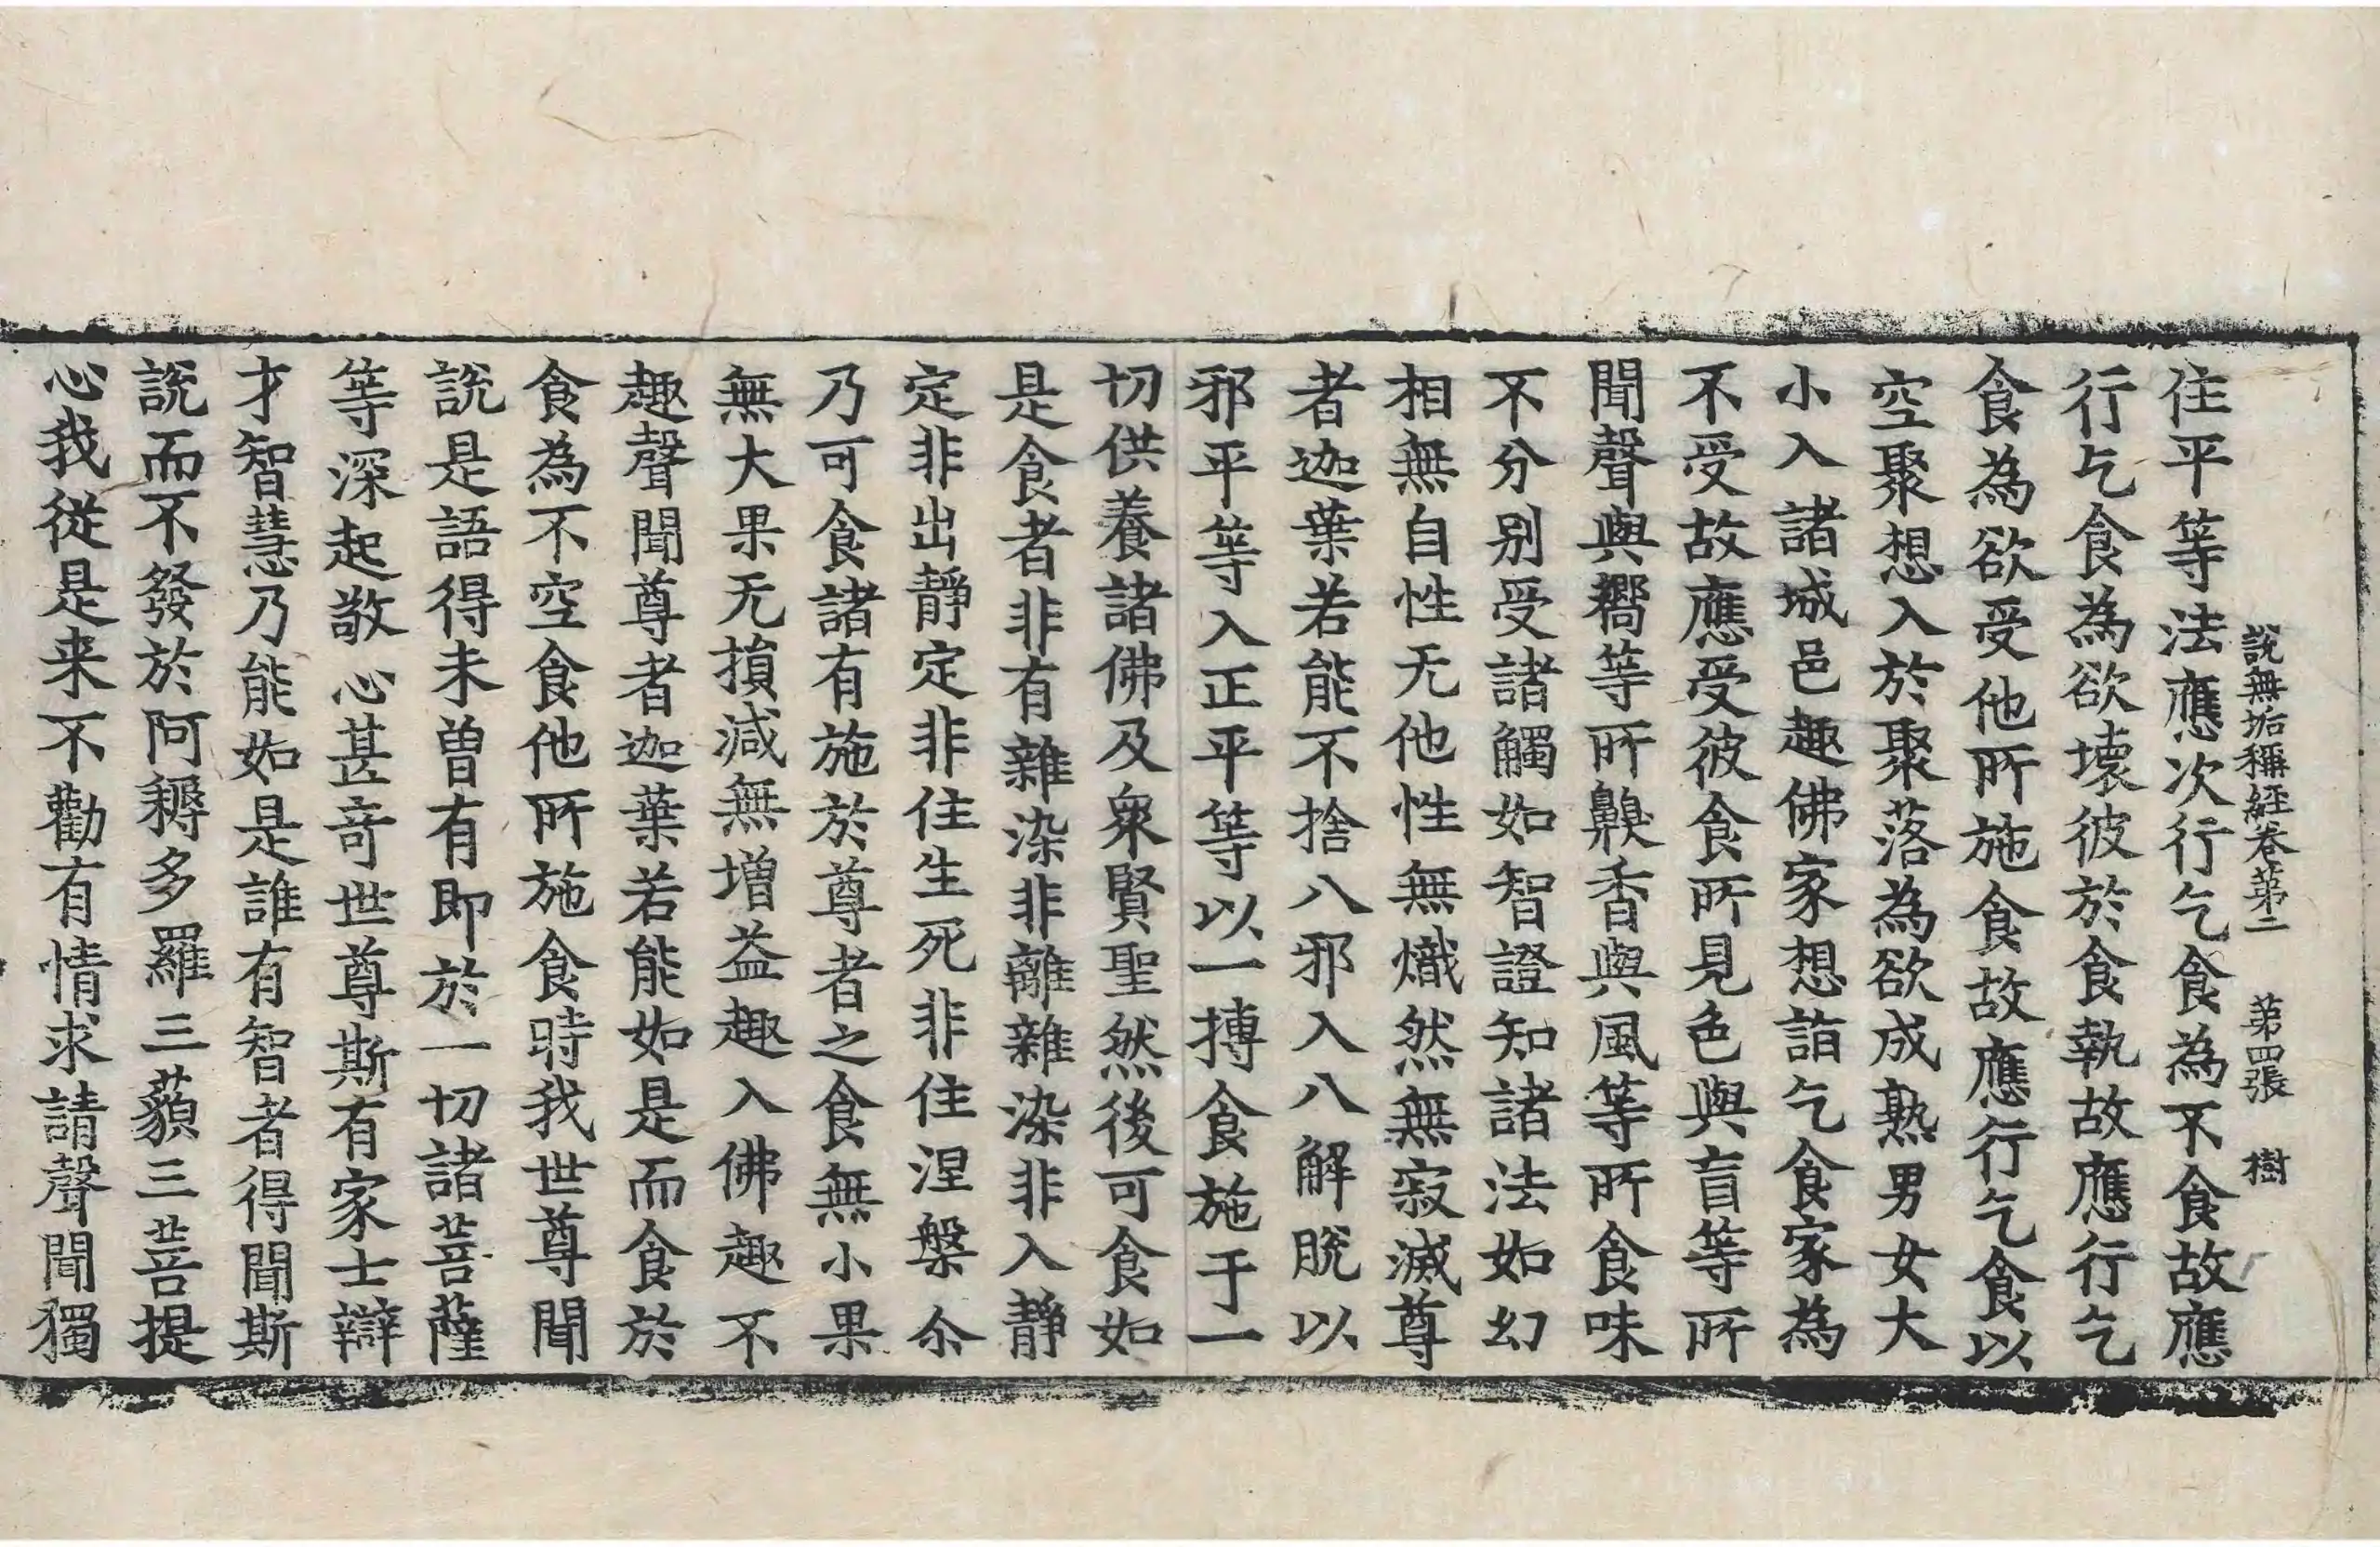 說無垢稱經卷第二　第四張　樹
住平等法應次行乞食為不食故應
行乞食為欲壞彼於食執故應行乞
食為欲受他所施食故應行乞食以
空聚想入於聚落為欲成熟男女大
小入諸城邑趣佛家想詣乞食家為
不受故應受彼食所見色與盲等所
聞聲與嚮等所齅香與風等所食味
不分別受諸觸如智證知諸法如幻
相無自性无他性無熾然無寂滅尊
者迦葉若能不捨八邪入八解脫以
邪平等入正平等以一摶食施于一
切供養諸佛及衆賢聖然後可食如
是食者非有雜染非離雜染非入靜
定非出靜定非住生死非住涅槃尒
乃可食諸有施於尊者之食無小果
無大果无損減無增益趣入佛趣不
趣聲聞尊者迦葉若能如是而食於
食為不空食他所施食時我世尊聞
說是語得未曾有即於一切諸菩薩
等深起敬心甚奇世尊斯有家士辯
才智慧乃能如是誰有智者得聞斯
說而不發於阿耨多羅三藐三菩提
心我從是来不勸有情求請聲聞獨